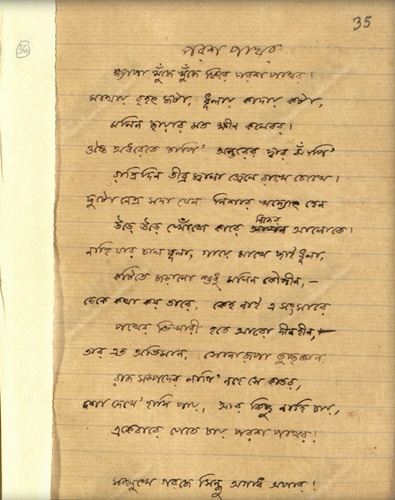 35
৩০
পরশ পাথর
খ্যাপা খুঁজে খুঁজে ফিরে পরশ পাথর।
মাথায় বৃহৎ জটা, ধূলায় কাদায় কটা,
মলিন ছায়ার মত ক্ষীণ কলেবর।
ওষ্ঠে অধরেতে চাপি' অন্তরের দ্বার ঝাঁপি'
রাত্রিদিন তীব্র জ্বালা জ্বেলে রাখে চোখে।
দুটো নেত্র সদা যেন নিশার খদ্যোৎ হেন
উড়ে উড়ে খোঁজে কারে নিজের আলোকে।
নাহি যার চাল চুলা, গায়ে মাখে ছাই ধূলা,
কটিতে জড়ানো শুধু মলিন কৌপীন, –
ডেকে কথা কয় তারে, কেহ নাই এ সংসারে
পথের ভিখারী হতে আরো দীনহীন,
তার এত অভিমান, সোনারূপা তুচ্ছজ্ঞান
রাজ সম্পদের লাগি' নহে সে কাতর,
দশা দেখে' হাসি পায়, আর কিছু নাহি চায়,
একেবারে পেতে চায় পরশ পাথর!
সম্মুখে গরজে সিন্ধু অগাধ অপার!